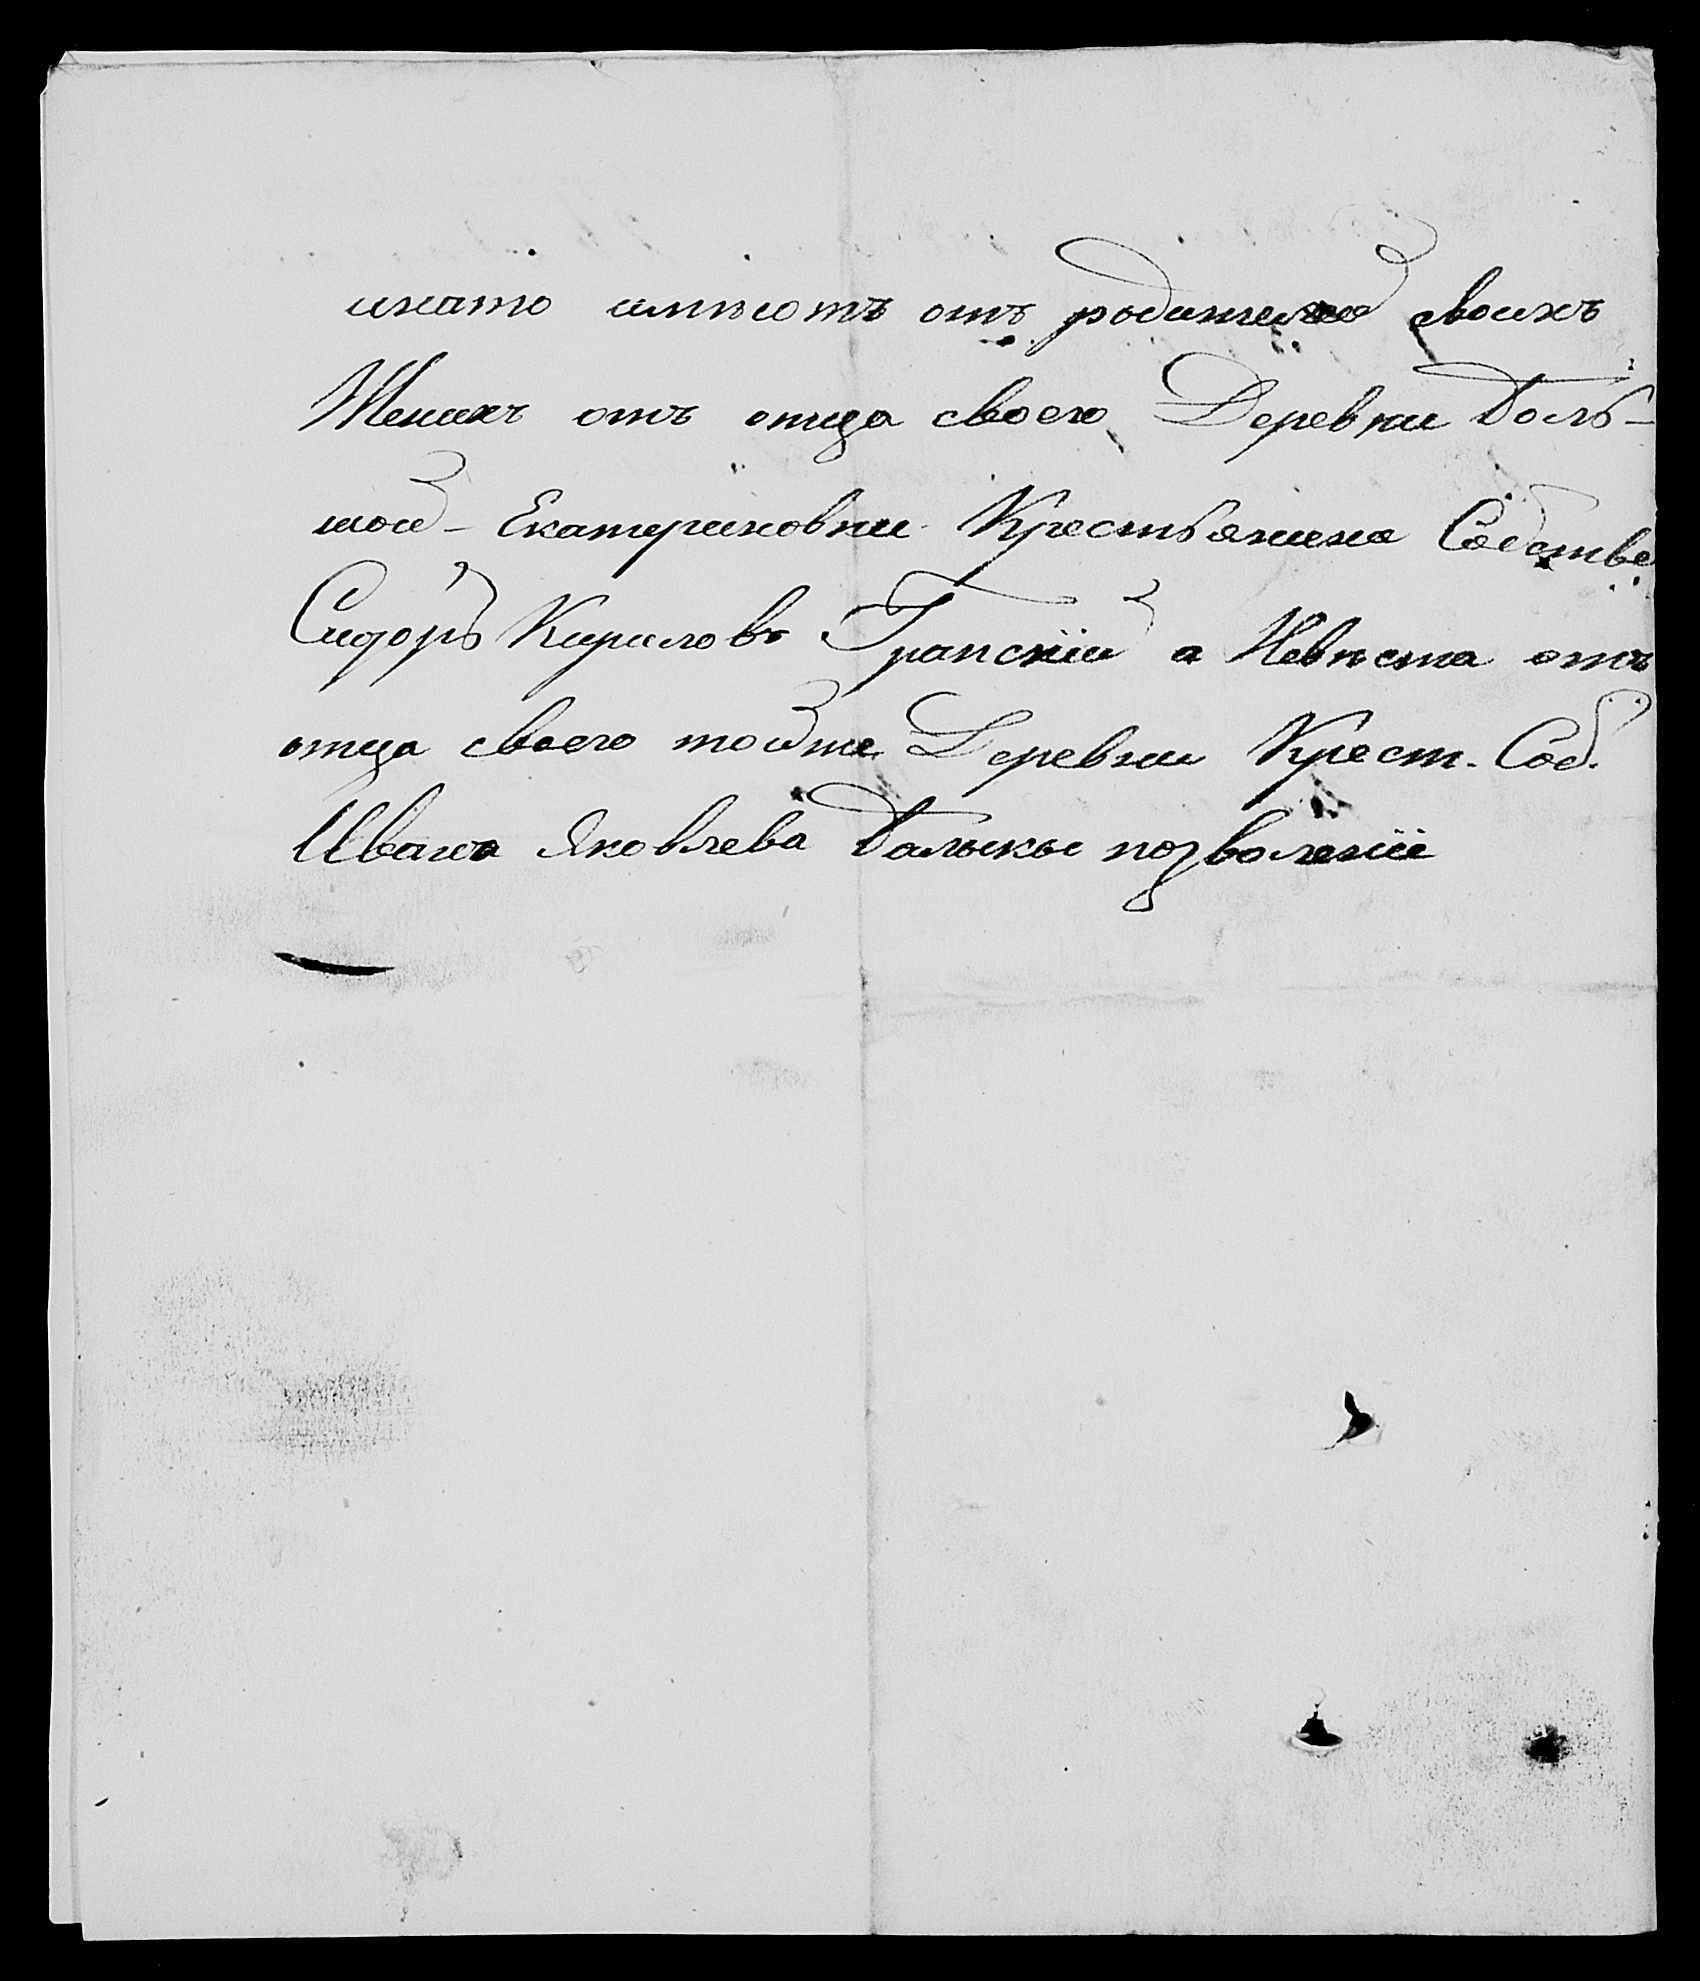 инато имѣютъ отъ родителей своихъ
Женихъ отъ отца своего Деревни Боль-
шой-Екатериновки Крестьянина Собстве
Сидоръ Кирилловъ Грапскій а Невѣста отъ
отца своего тойже Деревни Крест. Соб.
Ивана Яковлева позволеніе